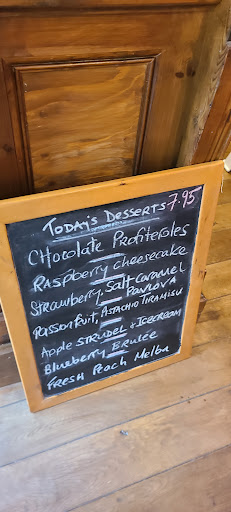 TODAY'S DESSERTS 7.95
Chocolate Profiteroles
Raspberry cheesecake
Strawberry, Salt Caramel
PAVLOVA
Passionfruit, PISTACHIO TIRAMISU
Apple STRUDEL & ICECREAM
Blueberry BRULÉE
FRESH Peach Melba